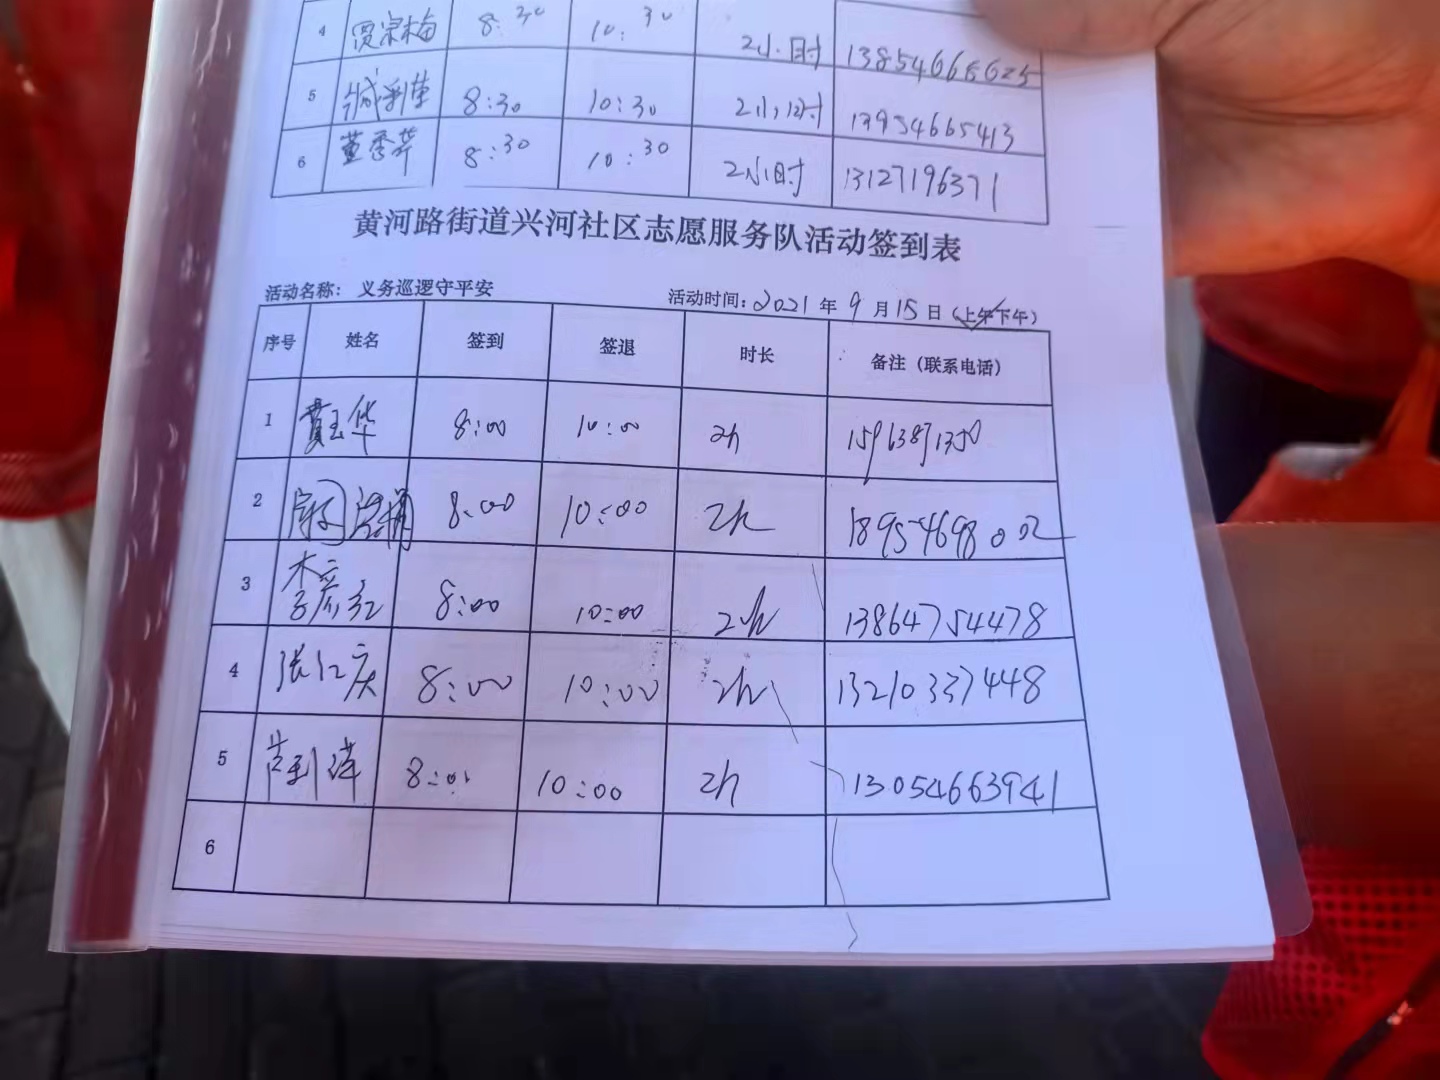 4 贾宗梅 8:30 10:30 2小时 13854668625
5 臧利荣 8:30 10:30 2小时 13954665413
6 董秀芹 8:30 10:30 2小时 13127196371
黄河路街道兴河社区志愿服务队活动签到表
活动名称：义务巡逻守平安 活动时间：2021年9月15日（上午下午）
序号 姓名 签到 签退 时长 备注（联系电话）
1 黄玉华 8:00 10:00 2h 15963871350
2 8:00 10:00 2h 18954698002
3 李彦红 8:00 10:00 2h 13864754478
4 张仁庆 8:00 10:00 2h 13210337448
5 8:00 10:00 2h 13054663941
6